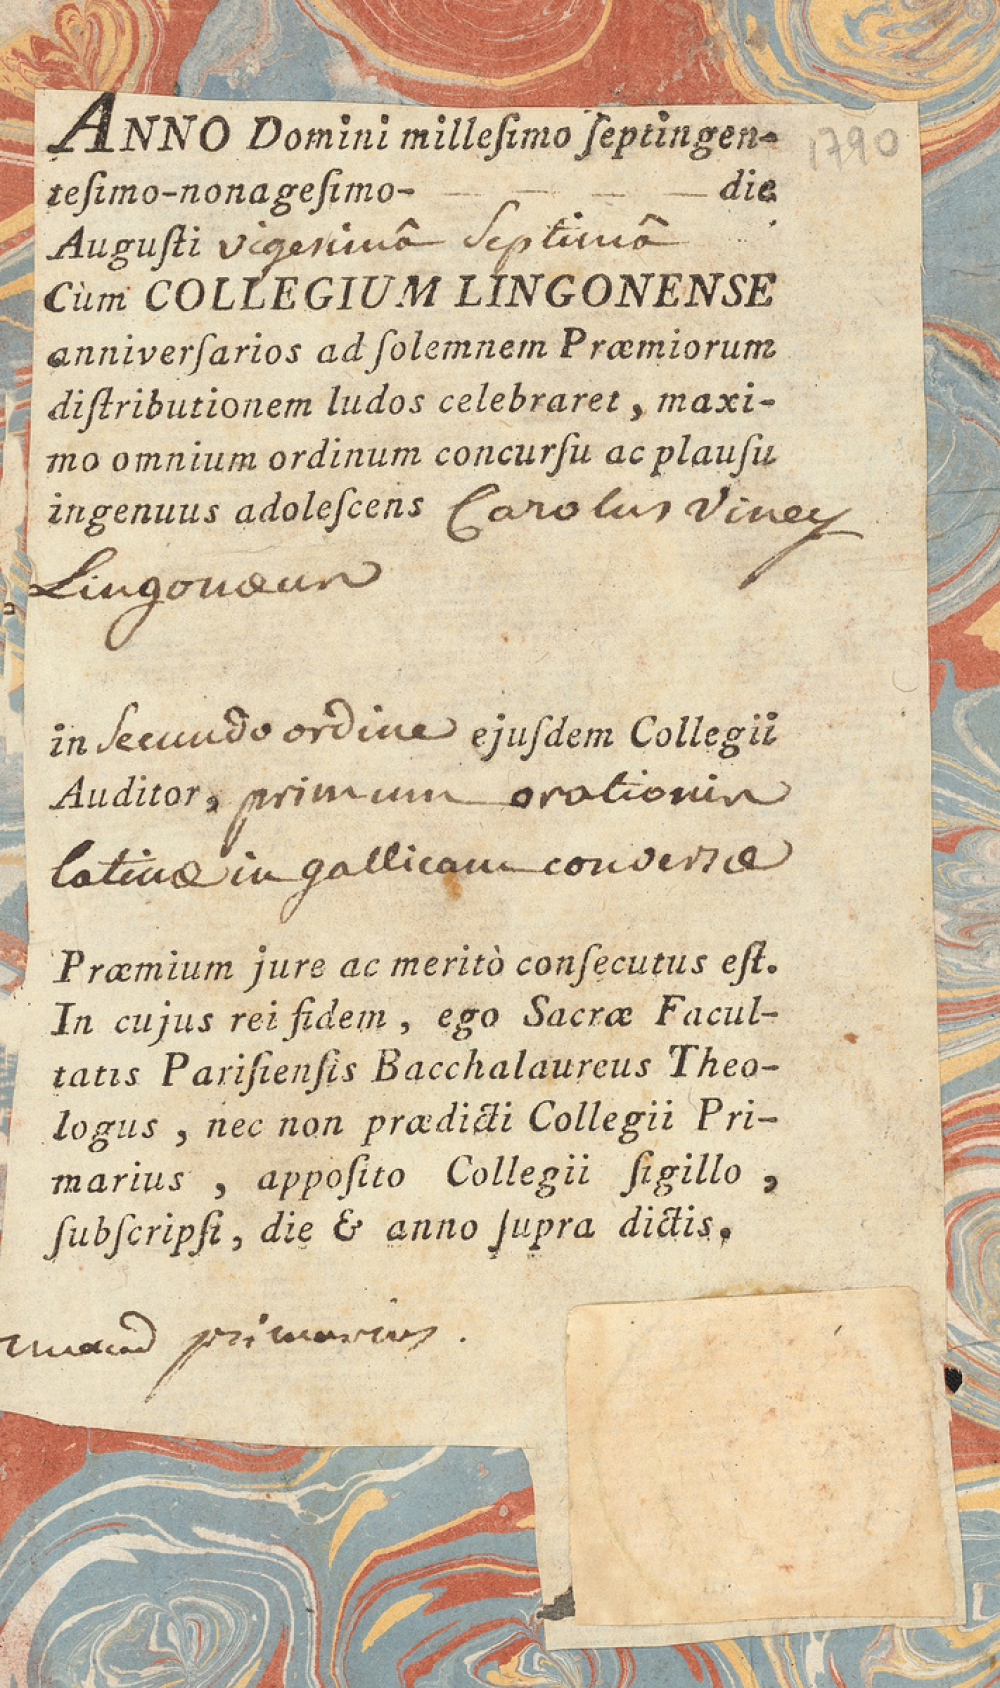 ANNO Domini millesimo septingen-
1790
tesimo-nonagesimo- — — — — die
Augusti vigesimâ septimâ
Cùm COLLEGIUM LINGONENSE
anniversarios ad solemnem Præmiorum
distributionem ludos celebraret, maxi-
mo omnium ordinum concursu ac plausu
ingenuus adolescens Carolus Viney
Lingonæus
in secundo ordine ejusdem Collegii
Auditor, primum orationis
latinæ in gallicam conversæ
Præmium jure ac meritò consecutus est.
In cujus rei fidem, ego Sacræ Facul-
tatis Parisiensis Bacchalaureus Theo-
logus, nec non prædicti Collegii Pri-
marius, apposito Collegii sigillo,
subscripsi, die & anno supra dictis.
primarius.